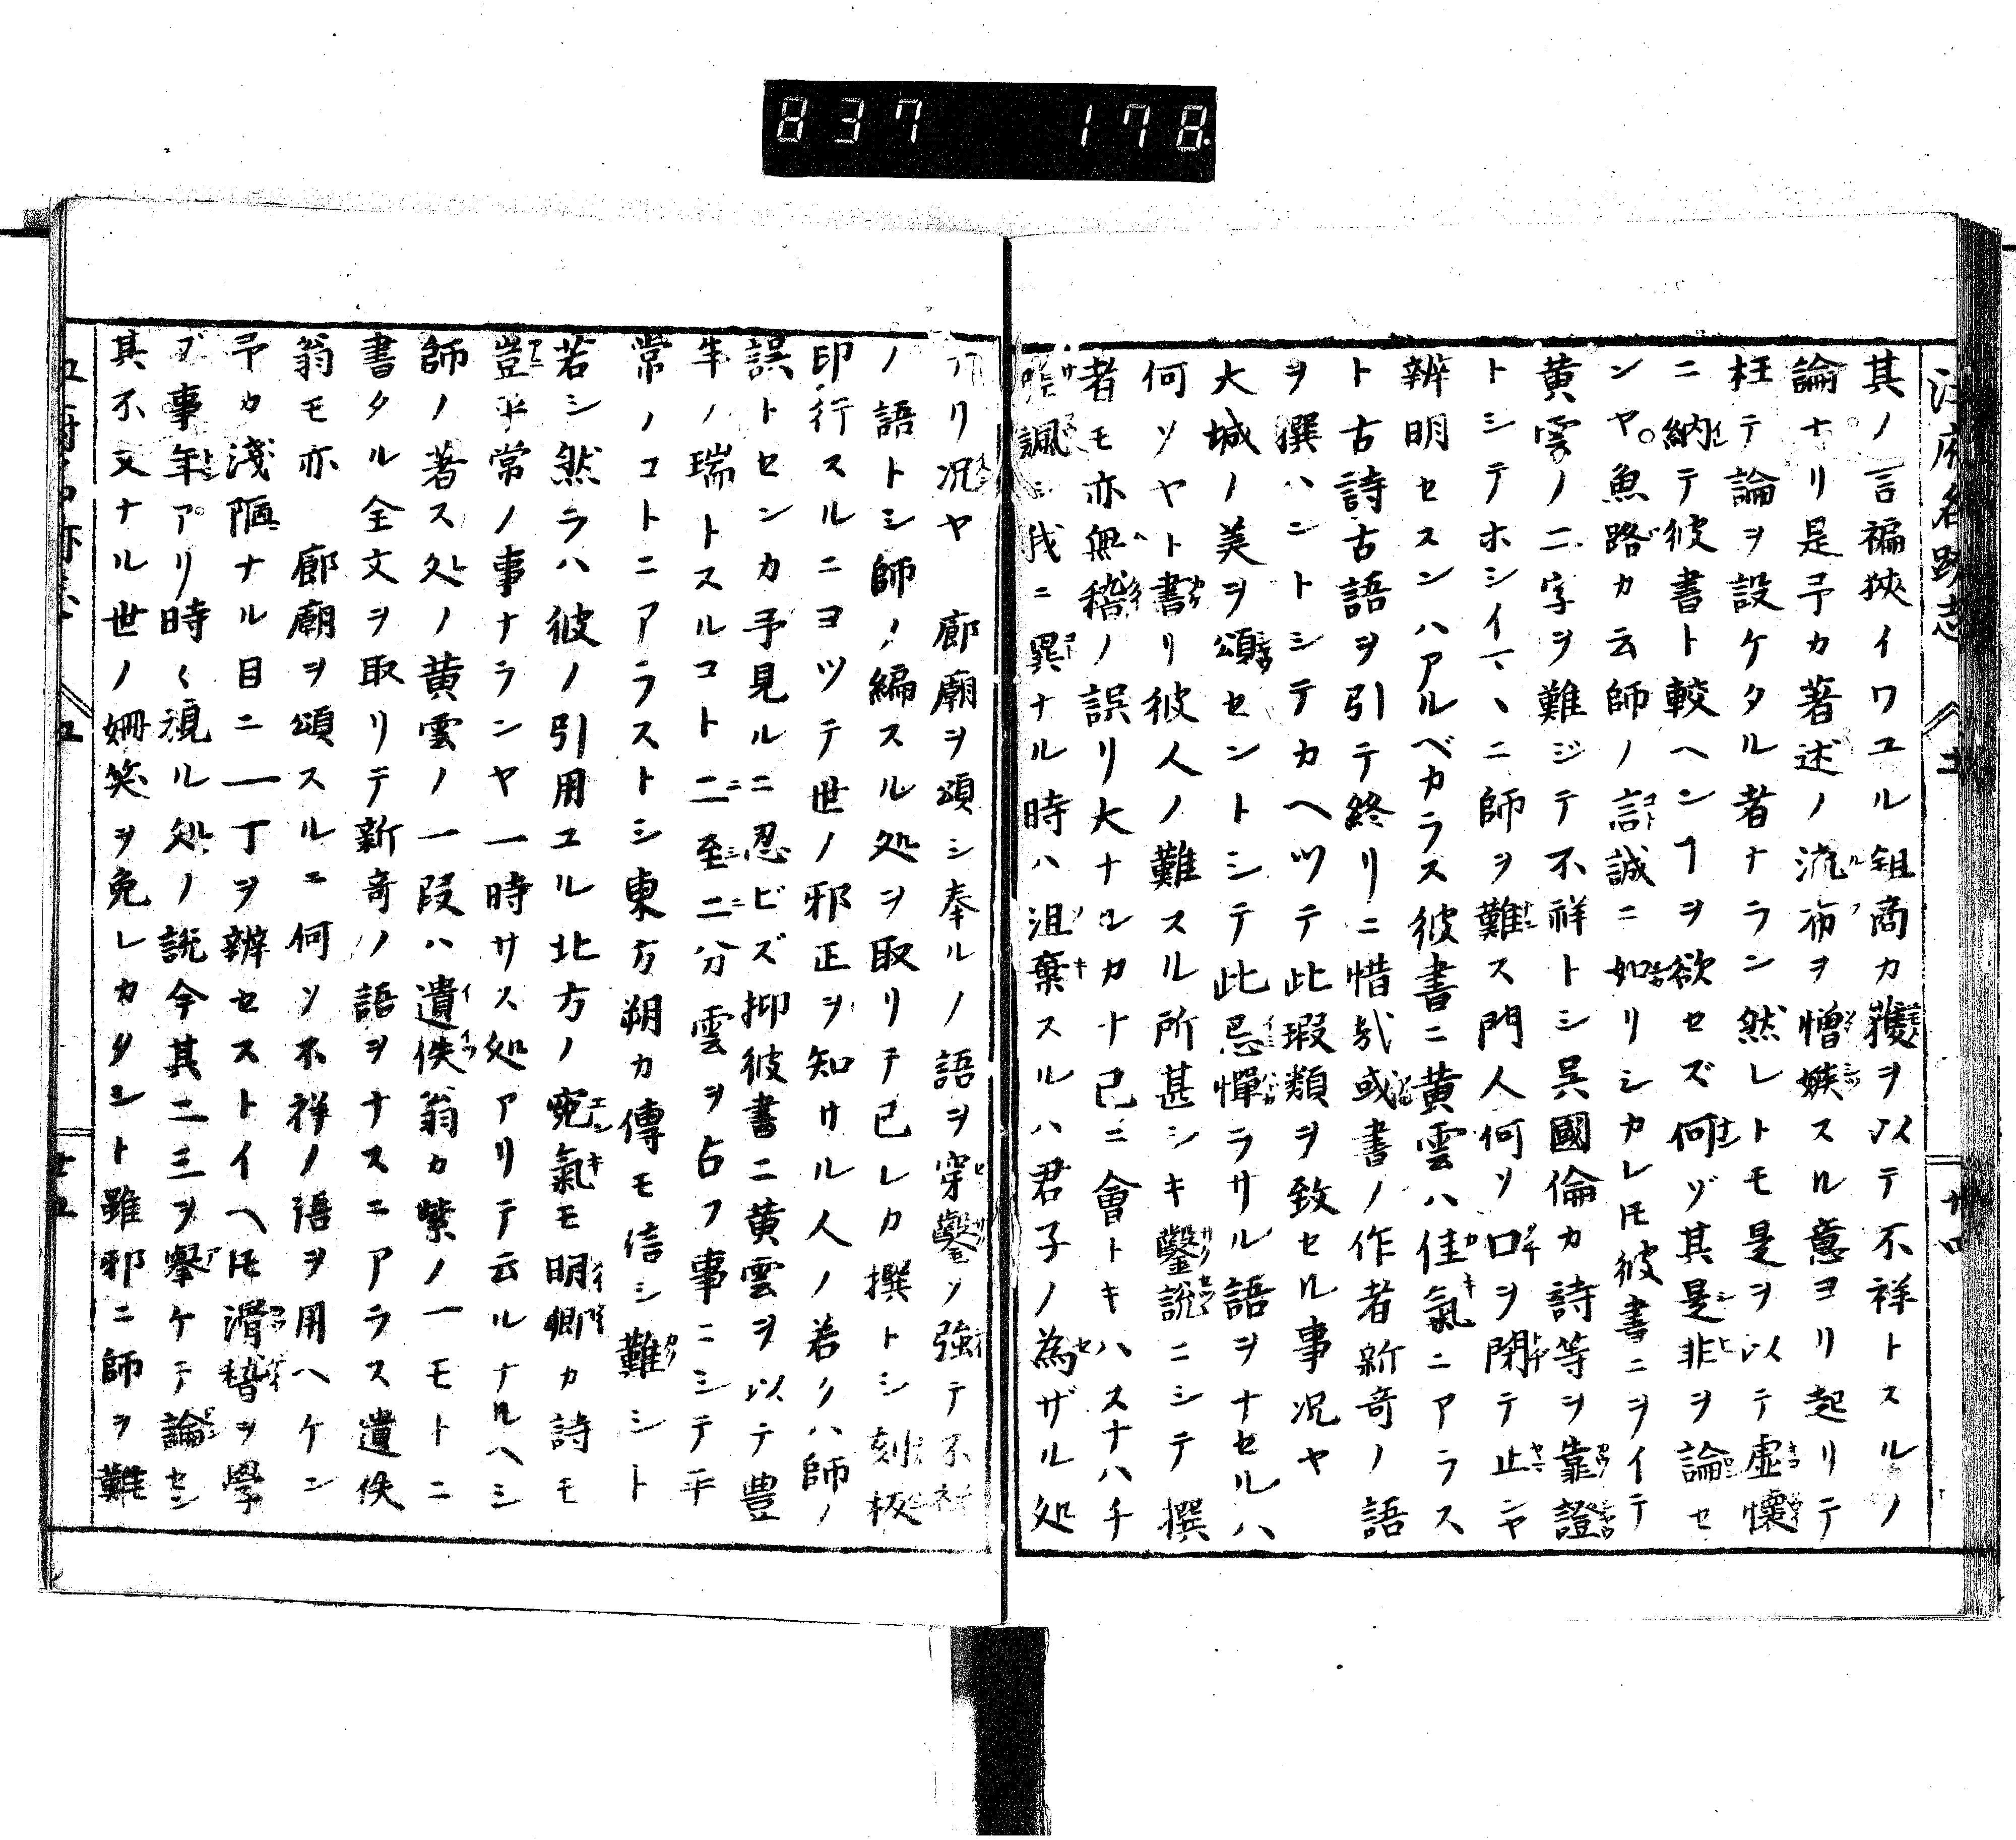 837 178
其ノ言褊狹イワユル鉏商カ獲ヲ以テ不祥トスルノ
論ナリ是予カ著述ノ流布ヲ憎嫉スル意ヨリ起リテ
枉テ論ヲ設ケタル者ナラン然レトモ是ヲ以テ虚懷
ニ納テ彼書ト較ヘンヿヲ欲セズ何ゾ其是非ヲ論セ
ンヤ。魚路カ云師ノ言誠ニ如リシカレ𪜈彼書ニヲイテ
黄雲ノ二字ヲ難ジテ不祥トシ呉國倫カ詩等ヲ靠證
トシテホシイマヽニ師ヲ難ス門人何ソ口ヲ閉テ止ンヤ
辨明セスンハアルベカラス彼書ニ黄雲ハ佳氣ニアラス
ト古詩古語ヲ引テ終リニ惜哉或書ノ作者新奇ノ語
ヲ撰ハントシテカヘツテ此瑕類ヲ致セル事况ヤ
大城ノ美ヲ頌セントシテ此忌憚ラサル語ヲナセルハ
何ソヤト書リ彼人ノ難スル所甚シキ鑿說ニシテ撰
者モ亦無稽ノ誤リ大ナルカナ己ニ會トキハスナハチ
諷シ我ニ異ナル時ハ沮棄スルハ君子ノ為ザル処
リ况ヤ 廊廟ヲ頌シ奉ルノ語ヲ穿鑿ソ強テ不祥
ノ語トシ師ノ編スル処ヲ取リテ已レカ撰トシ刻板
印行スルニヨツテ世ノ邪正ヲ知サル人ノ若クハ師ノ
誤トセンカ予見ルニ忍ビズ抑彼書ニ黄雲ヲ以テ豊
年ノ瑞トスルコト二至二分雲ヲ占フ事ニシテ平
常ノコトニアラストシ東方朔カ傳モ信シ難シト
若シ然ラハ彼ノ引用ユル北方ノ寃氣モ明卿カ詩モ
豈平常ノ事ナランヤ一時サス処アリテ云ルナルヘシ
師ノ著ス処ノ黄雲ノ一段ハ遺佚翁カ紫ノ一モトニ
書タル全文ヲ取リテ新奇ノ語ヲナスニアラス遺佚
翁モ亦 廊廟ヲ頌スルニ何ソ不祥ノ語ヲ用ヘケン
予カ淺陋ナル目ニ一丁ヲ辨セストイヘ𪜈滑稽ヲ學
ブ事年アリ時〱視ル処ノ說今其二三ヲ擧ケテ論セン
其不文ナル世ノ姍笑ヲ免レカタシト雖邪ニ師ヲ難